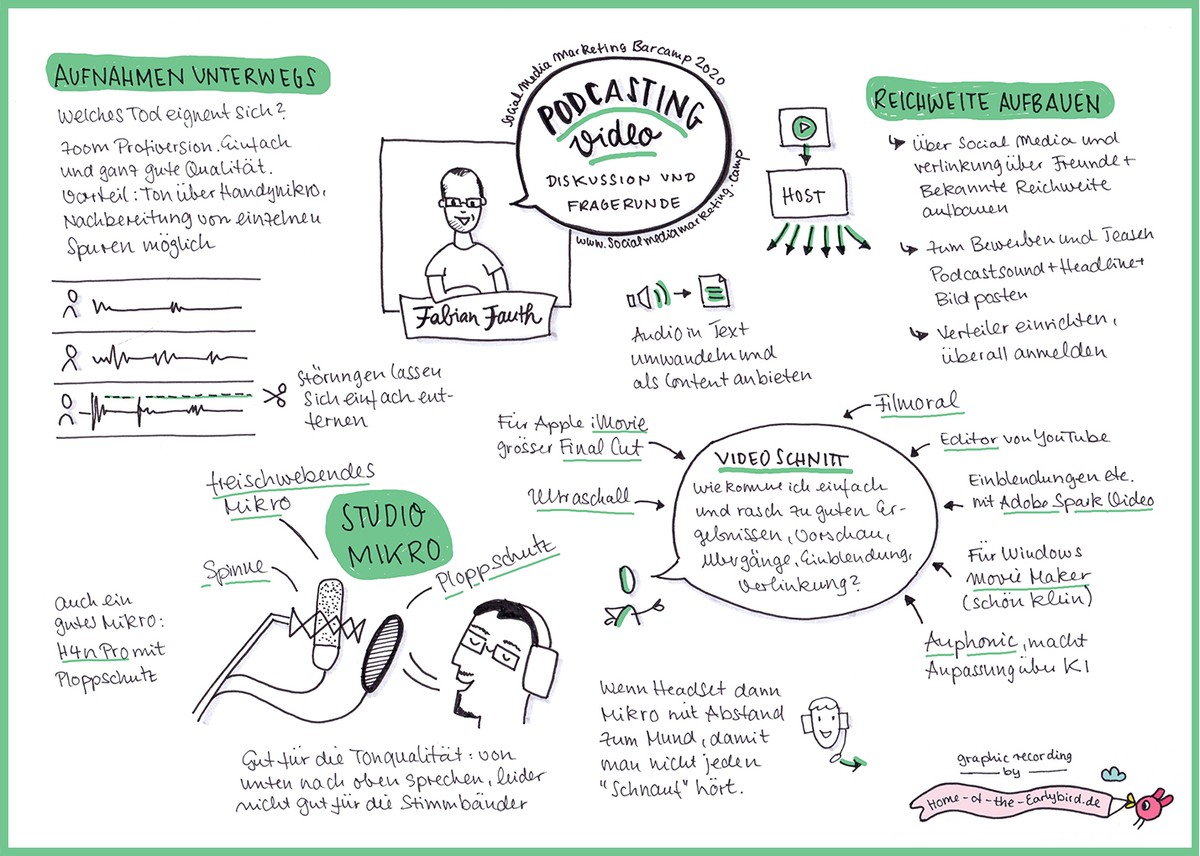 AUFNAHMEN UNTERWEGS
Welches Tool eignent sich?
Zoom Profiversion. Einfach
und ganz gute Qualität.
Vorteil: Ton über Handymikro,
Nachbereitung von einzelnen
Spuren möglich
Störungen lassen
sich einfach ent-
fernen
Social Media Marketing Barcamp 2020
PODCASTING
Video
DISKUSSION UND
FRAGERUNDE
www.socialmediamarketing.camp
Fabian Fauth
HOST
Audio in Text
umwandeln und
als Content anbieten
REICHWEITE AUFBAUEN
über Social Media und
verlinkung über Freunde +
Bekannte Reichweite
aufbauen
zum Bewerben und Teasen
Podcastsound + Headline +
Bild posten
Verteiler einrichten,
überall anmelden
STUDIO
MIKRO
freischwebendes
Mikro
Spinne
Ploppschutz
auch ein
gutes Mikro:
H4n Pro mit
Ploppschutz
Gut für die Tonqualität: von
unten nach oben sprechen, leider
nicht gut für die Stimmbänder
VIDEOSCHNITT
Wie komme ich einfach
und rasch zu guten Er-
gebnissen, Vorschau,
Übergänge, Einblendung,
Verlinkung?
Für Apple iMovie
grösser Final Cut
Ultraschall
Filmoral
Editor von YouTube
Einblendungen etc.
mit Adobe Spark Video
Für Windows
Movie Maker
(schön klein)
Auphonic, macht
Anpassung über KI
Wenn Headset dann
Mikro mit Abstand
zum Mund, damit
man nicht jeden
"Schnauf" hört.
graphic recording
by
Home-of-the-Earlybird.de